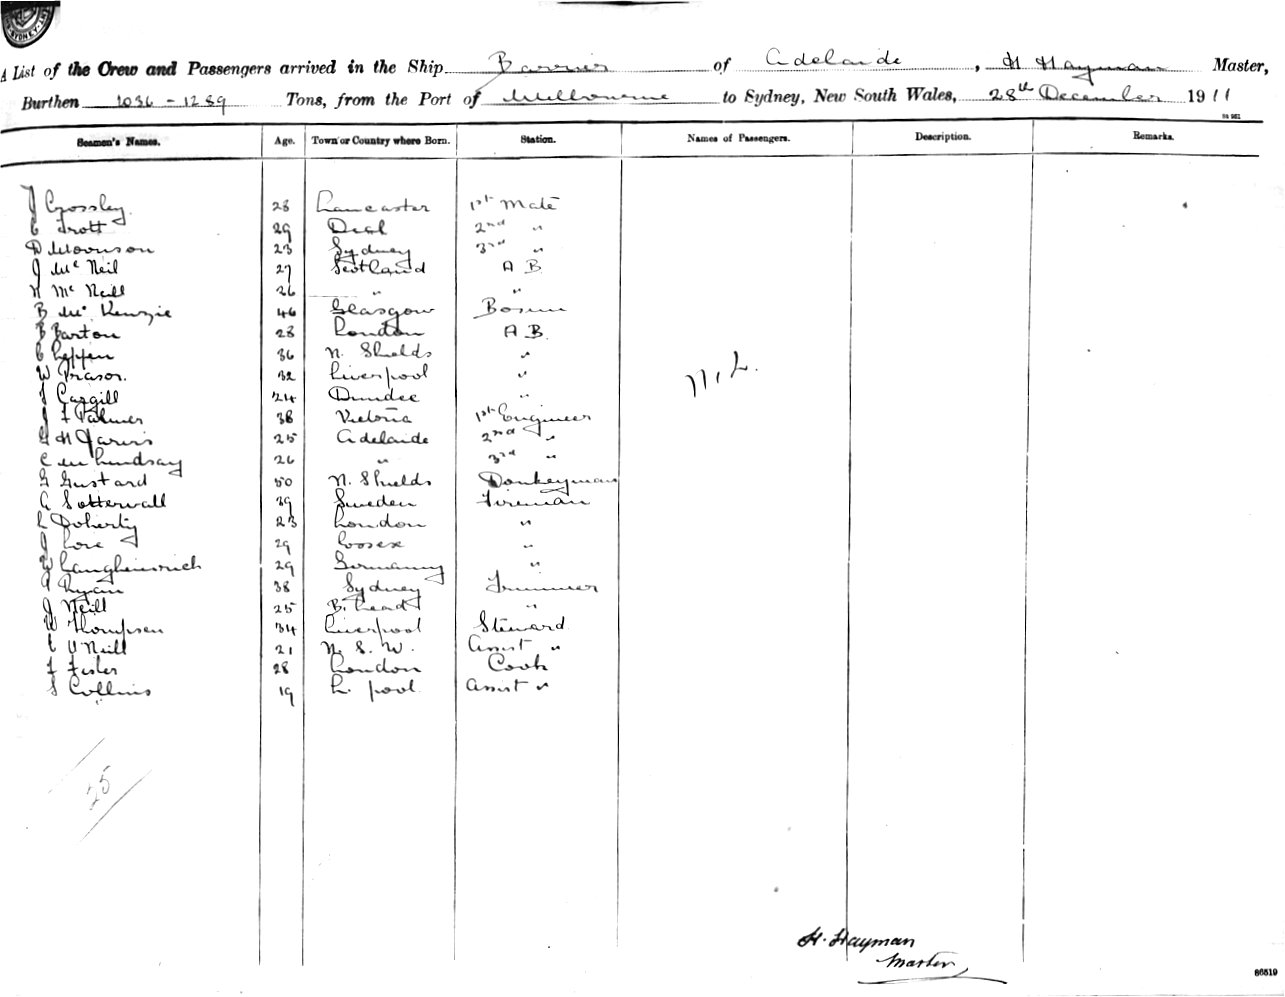 A List of the Crew and Passengers arrived in the Ship Barrier of Adelaide, H Hayman Master,
Burthen 1036 - 1289 Tons, from the Port of Melbourne to Sydney, New South Wales, 28th December 1911
Seamen's Names. Age. Town or Country where Born. Station. Names of Passengers. Description. Remarks.
J Crossley 28 Lancaster 1st Mate
C Trott 29 Deal 2nd "
D Morrison 23 Sydney 3rd "
J McNeil 27 Scotland A B
N McNeill 26 " "
B McKenzie 46 Glasgow Bosun
B Barton 28 London A B.
C 36 N. Shields "
W Frasor. 32 Liverpool "
J Cargill 24 Dundee "
J F Palmer 38 Victoria 1st Engineer
G H Jarvis 25 Adelaide 2nd "
C M Lindsay 26 " 3rd "
G Gustard 50 N. Shields Donkeyman
A Sotterwall 39 Sweden Fireman
L Doherty 23 London "
J Love 29 Essex "
W Langheinrich 29 Germany "
P Ryan 38 Sydney Trimmer
J Neill 25 B. head "
W Thompson 34 Liverpool Steward
C O'Neill 21 N. S. W. Assist "
F Fisher 28 London Cook
S Collins 19 L. pool Assist "
Nil.
25
H. Hayman
Master
86519